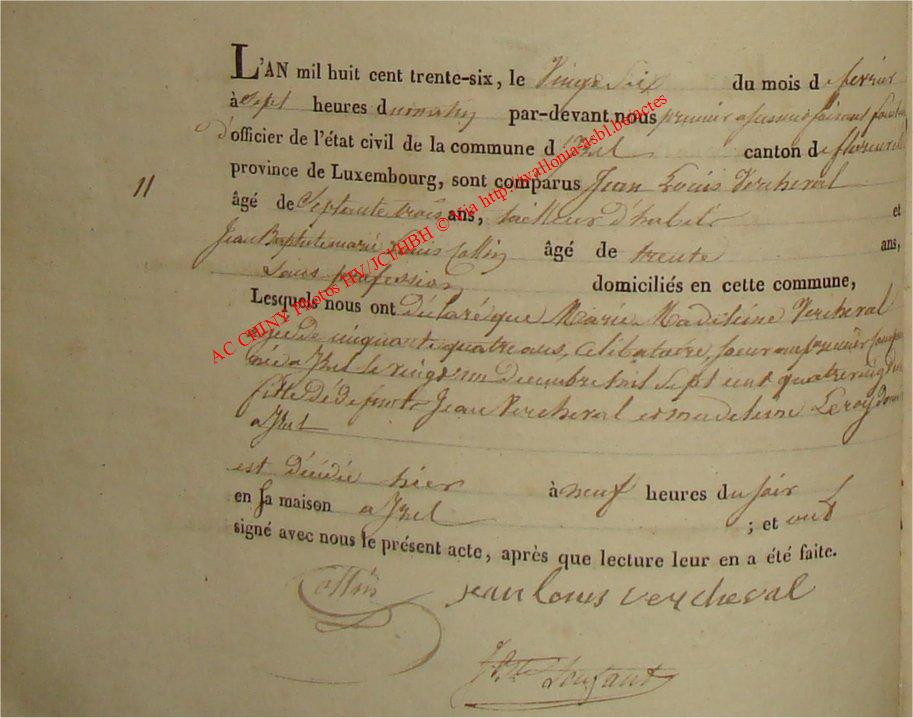 L'AN mil huit cent trente-six, le Vingt Six du mois de fevrier
à Sept heures du matin par-devant nous premier faisant
d'officier de l'état civil de la commune d'Izel canton de florenville
province de Luxembourg, sont comparus Jean Louis Vercheval
11
âgé de Septante trois ans, tailleur d'habits et
Jean Baptiste marie Louis Collin âgé de trente ans,
Sans profession domiciliés en cette commune,
Lesquels nous ont déclaré que Marie Madeleine Vercheval
agée de cinquante quatre ans, célibataire, soeur au premier
née a Izel le vingt un Decembre mil Sept cent quatre vingt
fille de défunts Jean Vercheval et madeleine Leroy
a Izel
est Décédée hier à neuf heures du soir
en sa maison a Izel ; et ont
signé avec nous le présent acte, après que lecture leur en a été faite.
Collin jean louis vercheval
AC CHINY Photos HV/JCT/HBH © via http://wallonia-asbl.be/actes